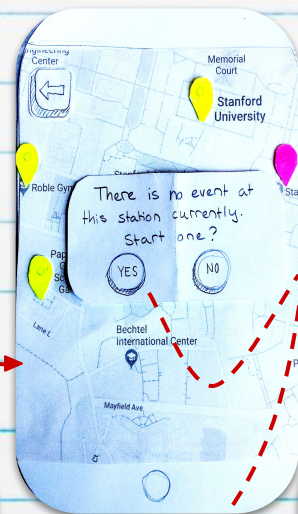 Engineering
Center
Memorial
Court
Stanford
University
Roble Gym
There is no event at
this station currently.
Start one?
YES
NO
Lane L
Bechtel
International Center
Mayfield Ave